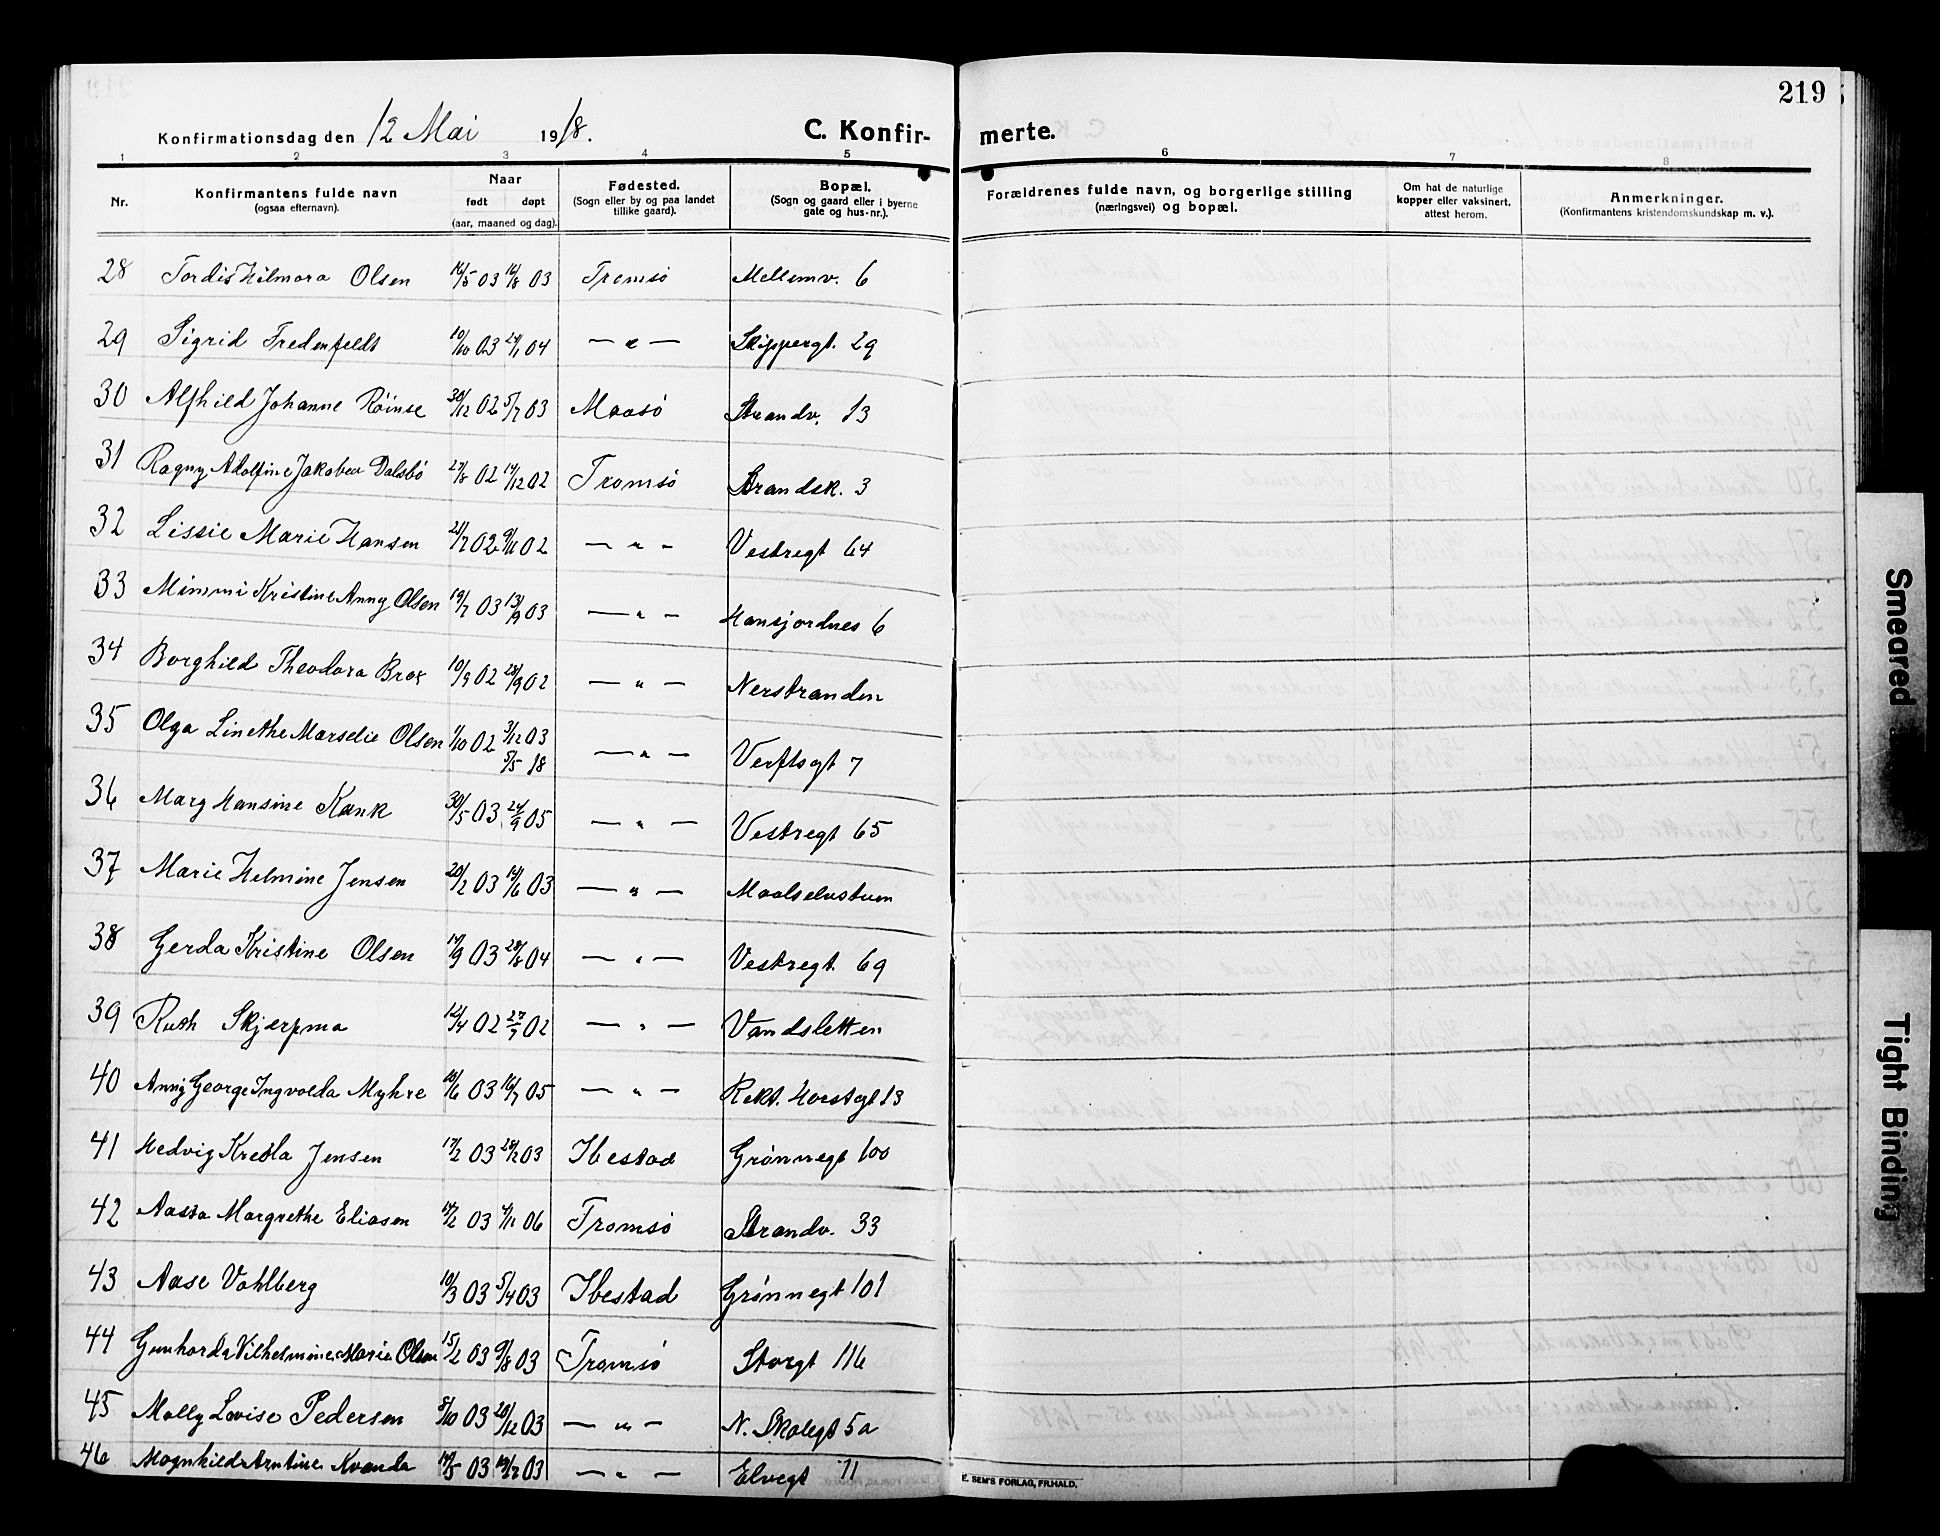 219
Konfirmationsdag den 12 Mai 1918. C. Konfirmerte.
1 2 3 4 5 6 7 8
Nr. Konfirmantens fulde navn (ogsaa efternavn). Naar født døpt (aar, maaned og dag). Fødested. (Sogn eller by og paa landet tillike gaard). Bopæl. (Sogn og gaard eller i byerne gate og hus-nr.). Forældrenes fulde navn, og borgerlige stilling (næringsvei) og bopæl. Om hat de naturlige kopper eller vaksinert, attest herom. Anmerkninger. (Konfirmantens kristendomskundskap m. v.).
28 Tordis Hilmara Olsen 16/5 03 16/8 03 Tromsø Mellemv. 6
29 Sigrid Fredenfeldt 10/10 03 24/1 04 — " — Skippergt. 29
30 Alfhild Johanne Röinse 30/12 02 5/7 03 Maasö Strandv. 13
31 Ragny Adolfine Jakobea Dalsbö 27/8 02 14/12 02 Tromsö Strandsk. 3
32 Lissie Marie Hansen 21/7 02 9/11 02 — " — Vestregt 64
33 Mimmi Kristine Anny Olsen 19/7 03 13/9 03 — " — Hansjordnes 6
34 Borghild Theodora Brox 10/9 02 28/9 02 — " — Nerstranden
35 Olga Linethe Marselie Olsen 1/10 02 3/12 03 — " — Verftsgt 7
5/5 18
36 Mary Hansine Kank 30/5 03 24/9 05 — " — Vestregt 65
37 Marie Helmine Jensen 20/2 03 14/6 03 — " — Maalselvstuen
38 Gerda Kristine Olsen 17/9 03 28/8 04 — " — Vestregt. 69
39 Ruth Skjerpmo 12/4 02 27/7 02 — " — Vandsletten
40 Anny George Ingvolda Myhre 10/6 03 16/7 05 — " — Rekt. Horstgt 13
41 Hedvig Kresla Jensen 17/2 03 28/2 03 Ibestad Grønnegt 100
42 Aasta Margrethe Eliasen 14/2 03 4/11 06 Tromsö Strandv. 33
43 Aase Vahlberg 10/3 03 5/4 03 Ibestad Grønnegt 101
44 Gunhorda Vilhelmine Marie Olsen 15/2 03 9/8 03 Tromsö Storgt 116
45 Molly Lovise Pedersen 8/10 03 28/12 03 — " — N. Skolegt 5a
46 Magnhild Arntine Kvanda 14/5 03 19/7 03 — " — Elvegt 11
E. SEM'S FORLAG, FR.HALD.
Smeared
Tight Binding